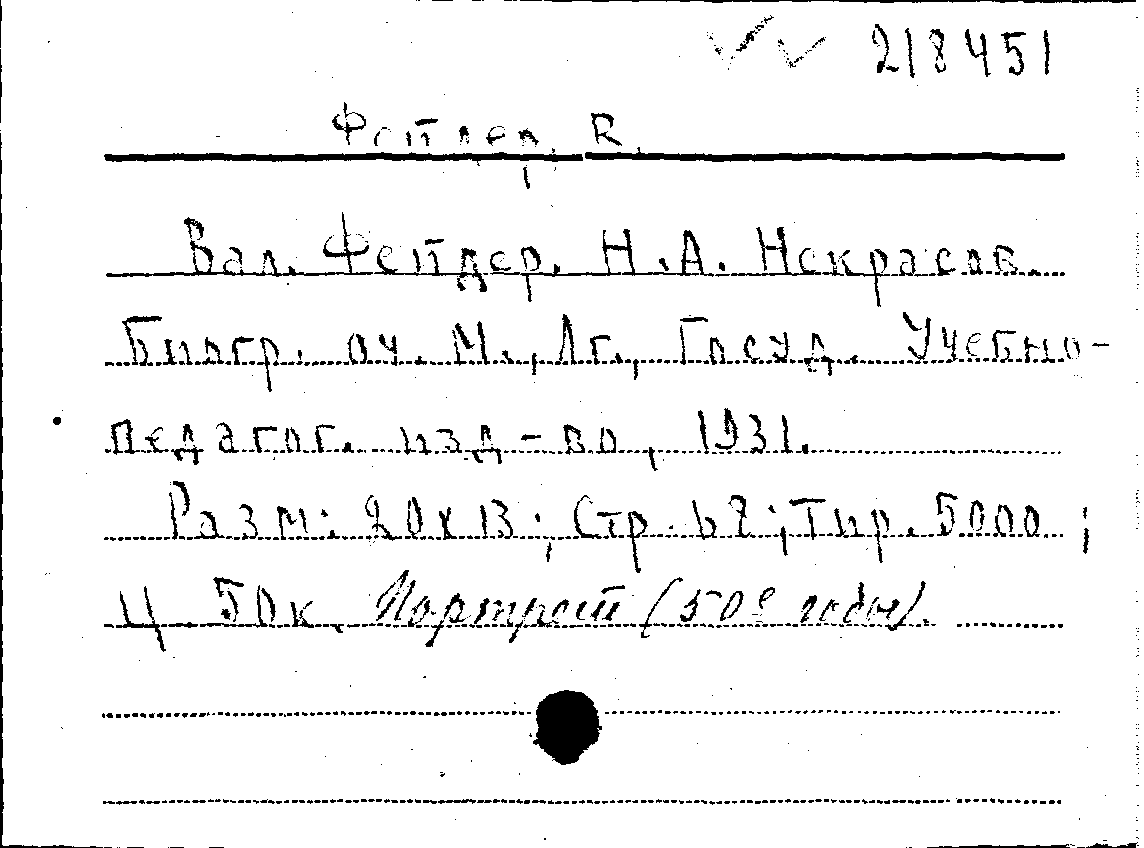 218451
Фейдер, В.
Вал. Фейдер. Н.А. Некрасов.
Биогр. оч. М., Лг., Госуд. Учебно-
педагог. изд-во, 1931.
Разм: 20х13; Стр. 62; Тир. 5000;
Ц. 50к. Портрет (50е годы).